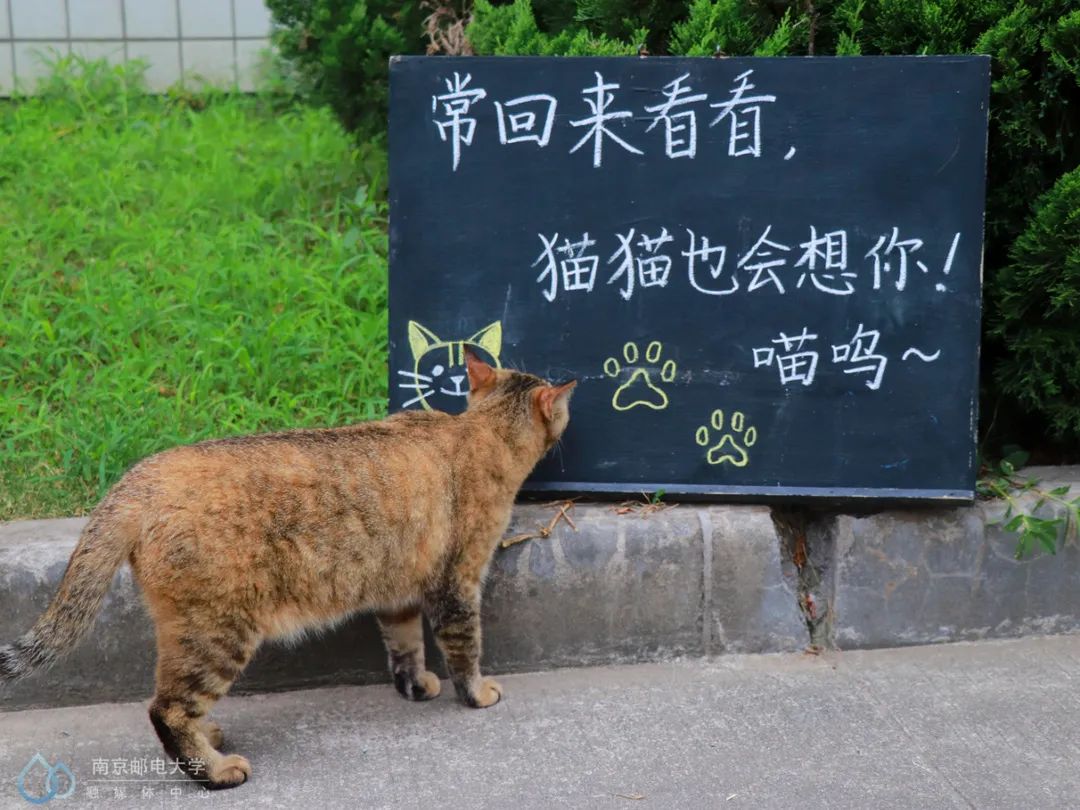 常回来看看，
猫猫也会想你！
喵呜～
南京邮电大学
融媒体中心